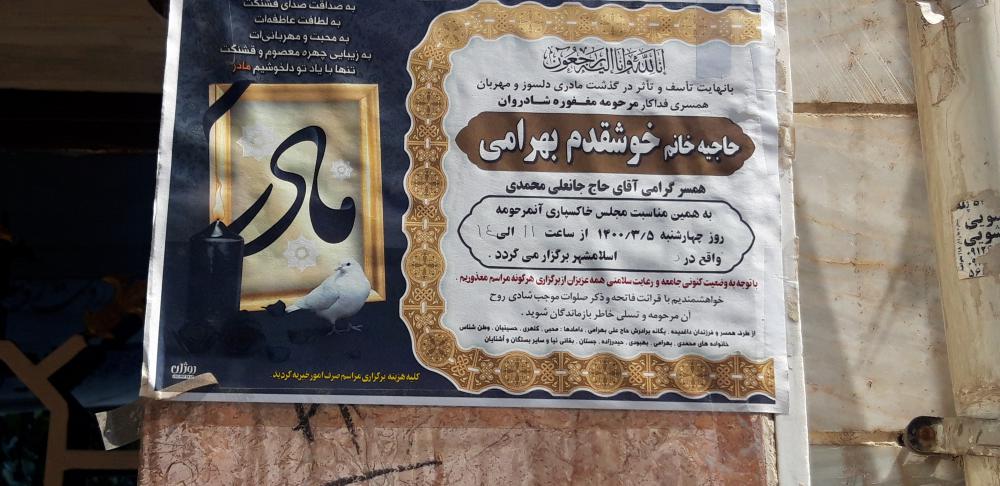 به صداقت صدای قشنگت
به لطافت عاطفه‌ات
به محبت و مهربانی‌ات
به زیبایی چهره معصوم و قشنگت
تنها با یاد تو دلخوشیم مادر
مادر
روژان
کلیه هزینه برگزاری مراسم صرف امور خیریه گردید.
انالله و انا الیه راجعون
بانهایت تأسف و تأثر در گذشت مادری دلسوز و مهربان
همسری فداکار مرحومه مغفوره شادروان
حاجیه خانم خوشقدم بهرامی
همسر گرامی آقای حاج جانعلی محمدی
به همین مناسبت مجلس خاکسپاری آنمرحومه
روز چهارشنبه ۱۴۰۰/۳/۵ از ساعت ۱۱ الی ۱۴
واقع در اسلامشهر برگزار می گردد .
با توجه به وضعیت کنونی جامعه و رعایت سلامتی همه عزیزان از برگزاری هرگونه مراسم معذوریم .
خواهشمندیم با قرائت فاتحه و ذکر صلوات موجب شادی روح
آن مرحومه و تسلی خاطر بازماندگان شوید .
از طرف همسر و فرزندان داغدیده . یگانه برادرش حاج علی بهرامی . دامادها : محبی . کلهری . حسینیان . وطن شناس
خانواده های محمدی . بهرامی . بهبودی . حیدرزاده . جستان . بقائی نیا و سایر بستگان و آشنایان